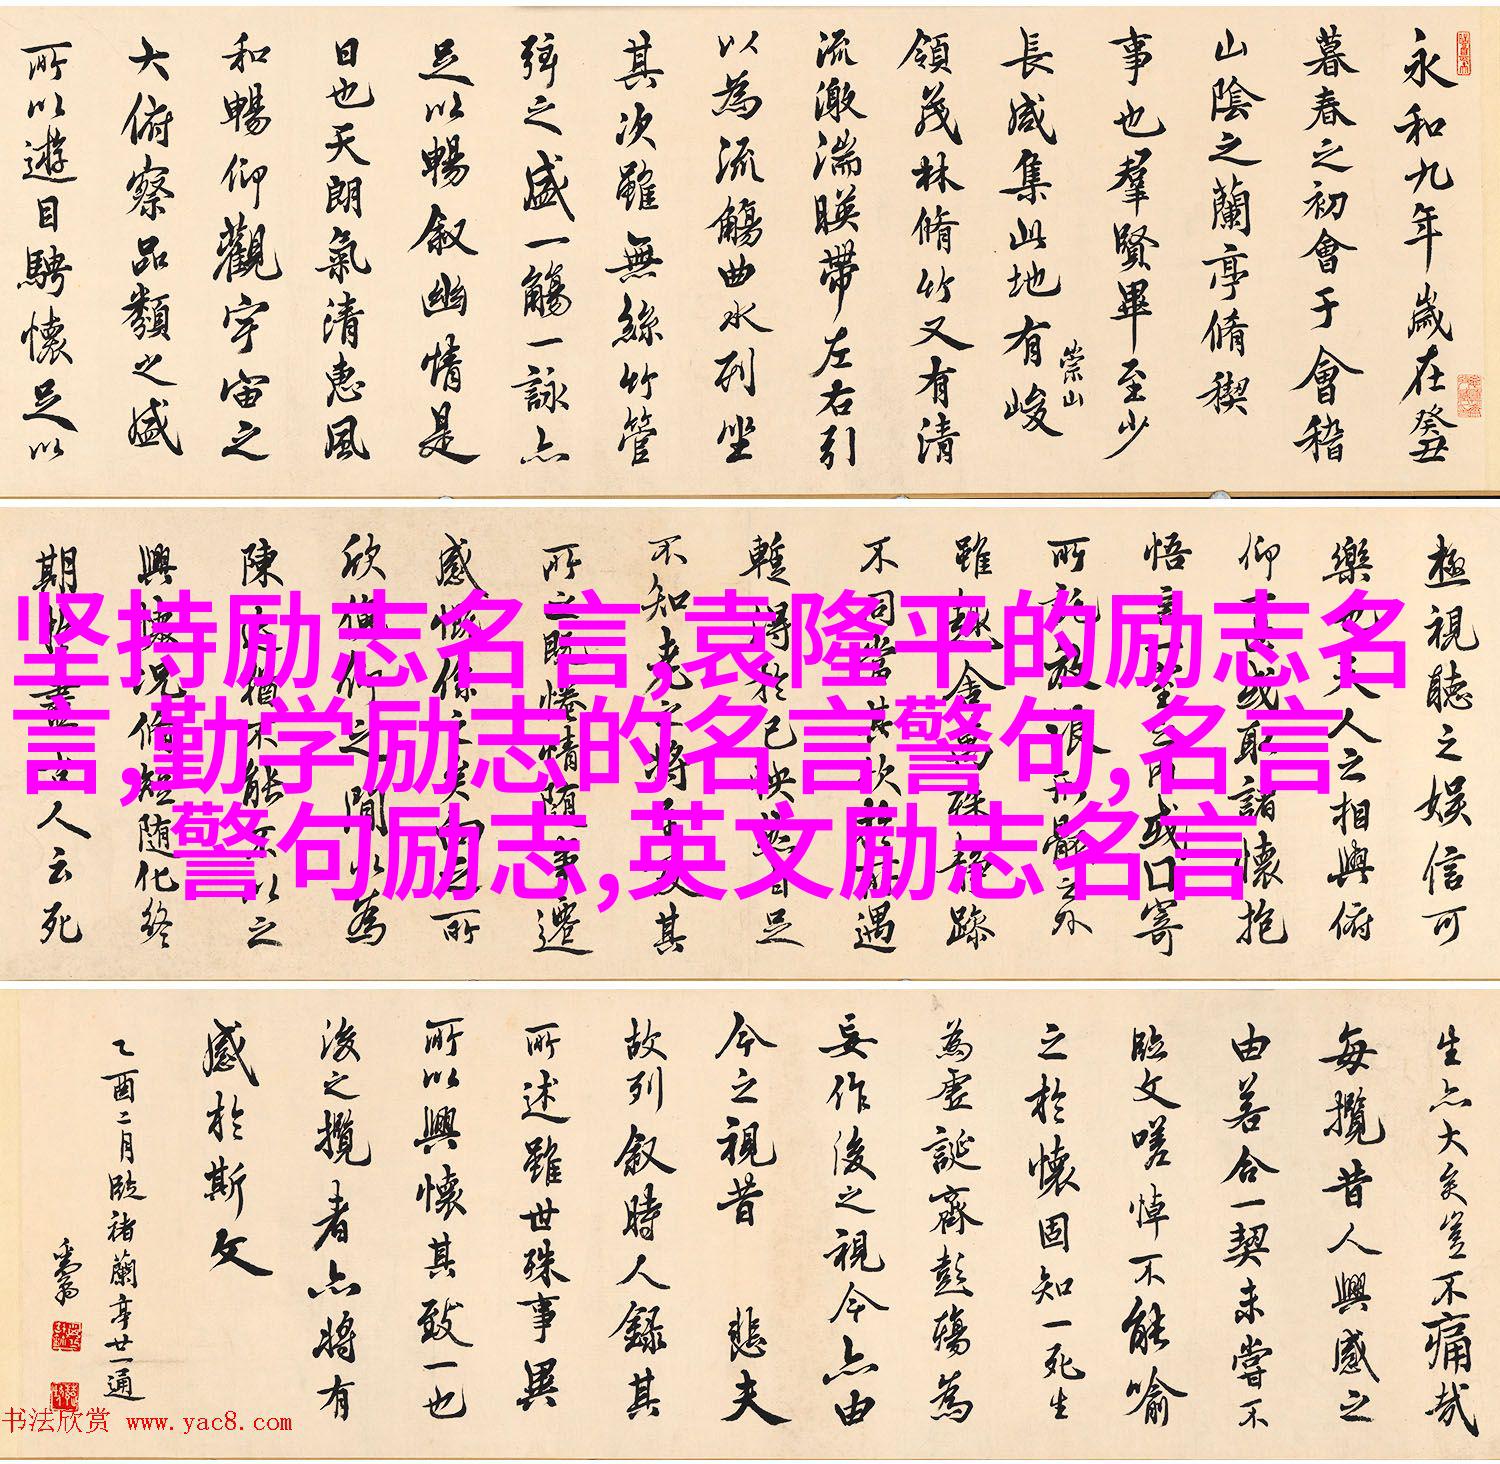 永和九年歲在癸丑
暮春之初會于會稽
山陰之蘭亭脩稧
事也羣賢畢至少
長咸集此地有峻
崇山
領茂林脩竹又有清
流激湍暎帶左右引
以為流觴曲水列坐
其次雖無絲竹管
弦之盛一觴一詠亦
足以暢叙幽情是
日也天朗氣清惠風
和暢仰觀宇宙之
大俯察品類之盛
所以遊目騁懷足以
極視聽之娛信可
樂也夫人之相與俯
仰一世或取諸懷抱
悟言一室之內或口寄
所託放浪形骸之外
雖趣舍萬殊静躁
不同當其欣於所遇
暫得於己怏然自足
不知老之將至及其
所之既惓情随事遷
感慨係之矣向之所
欣俛仰之間以為
陳迹猶不能不以之
興懷況脩短随化終
期於盡古人云死
生亦大矣豈不痛哉
每攬昔人興感之
由若合一契未嘗不
臨文嗟悼不能喻
之於懷固知一死生
為虛誕齊彭殤為
妄作後之視今亦由
今之視昔 悲夫
故列叙時人錄其
所述雖世殊事異
所以興懷其致一也
後之攬者亦將有
感於斯文
乙酉二月臨褚蘭亭廿一通
坚持励志名言,袁隆平的励志名
言,勤学励志的名言警句,名言
警句励志,英文励志名言
书法欣赏 www.yac8.com